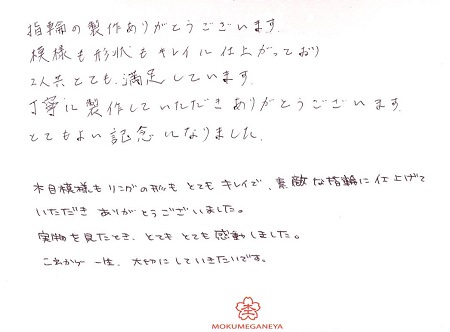 指輪の製作ありがとうございます。
模様も形状もキレイに仕上がっており
2人共とても、満足しています。
丁寧に製作していただきありがとうございます。
とてもよい記念になりました。
木目模様もリングの形もとてもキレイで、素敵な指輪に仕上げて
いただきありがとうございました。
実物を見たとき、とてもとても感動しました。
これから一生、大切にしていきたいです。
MOKUMEGANEYA